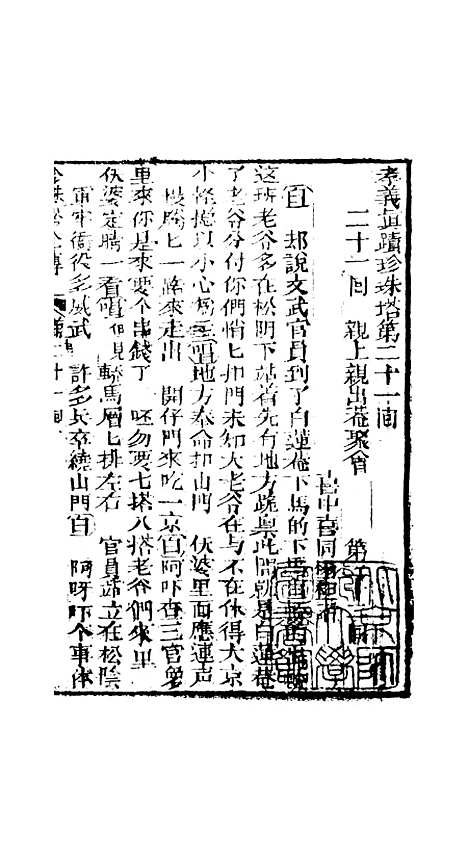 孝義真蹟珍珠塔第二十一囬
二十一囬 親上親出菴聚會 第
喜中喜同
白 却說文武官員到了白蓮菴下馬的下
这班老爷多在松阴下站着先有地方跪禀此間就是白蓮菴
了老爷分付你們悄匕扣門未知大老爷在与不在休得大京
小怪摠只小心 唱地方奉命扣山門 伏婆里面應連声
慢騰匕一路來走出 開仔門來吃一京白阿吓杳三官爺
里來你是來要个串錢了 呸勿要七搭八搭老爷們來里
伏婆定睛一看唱但見轎馬層匕排左右 官員站立在松陰
軍牢衙役多威武 許多兵卒繞山門白 阿呀吓个事体
珍珠塔全傳 第二十一囬